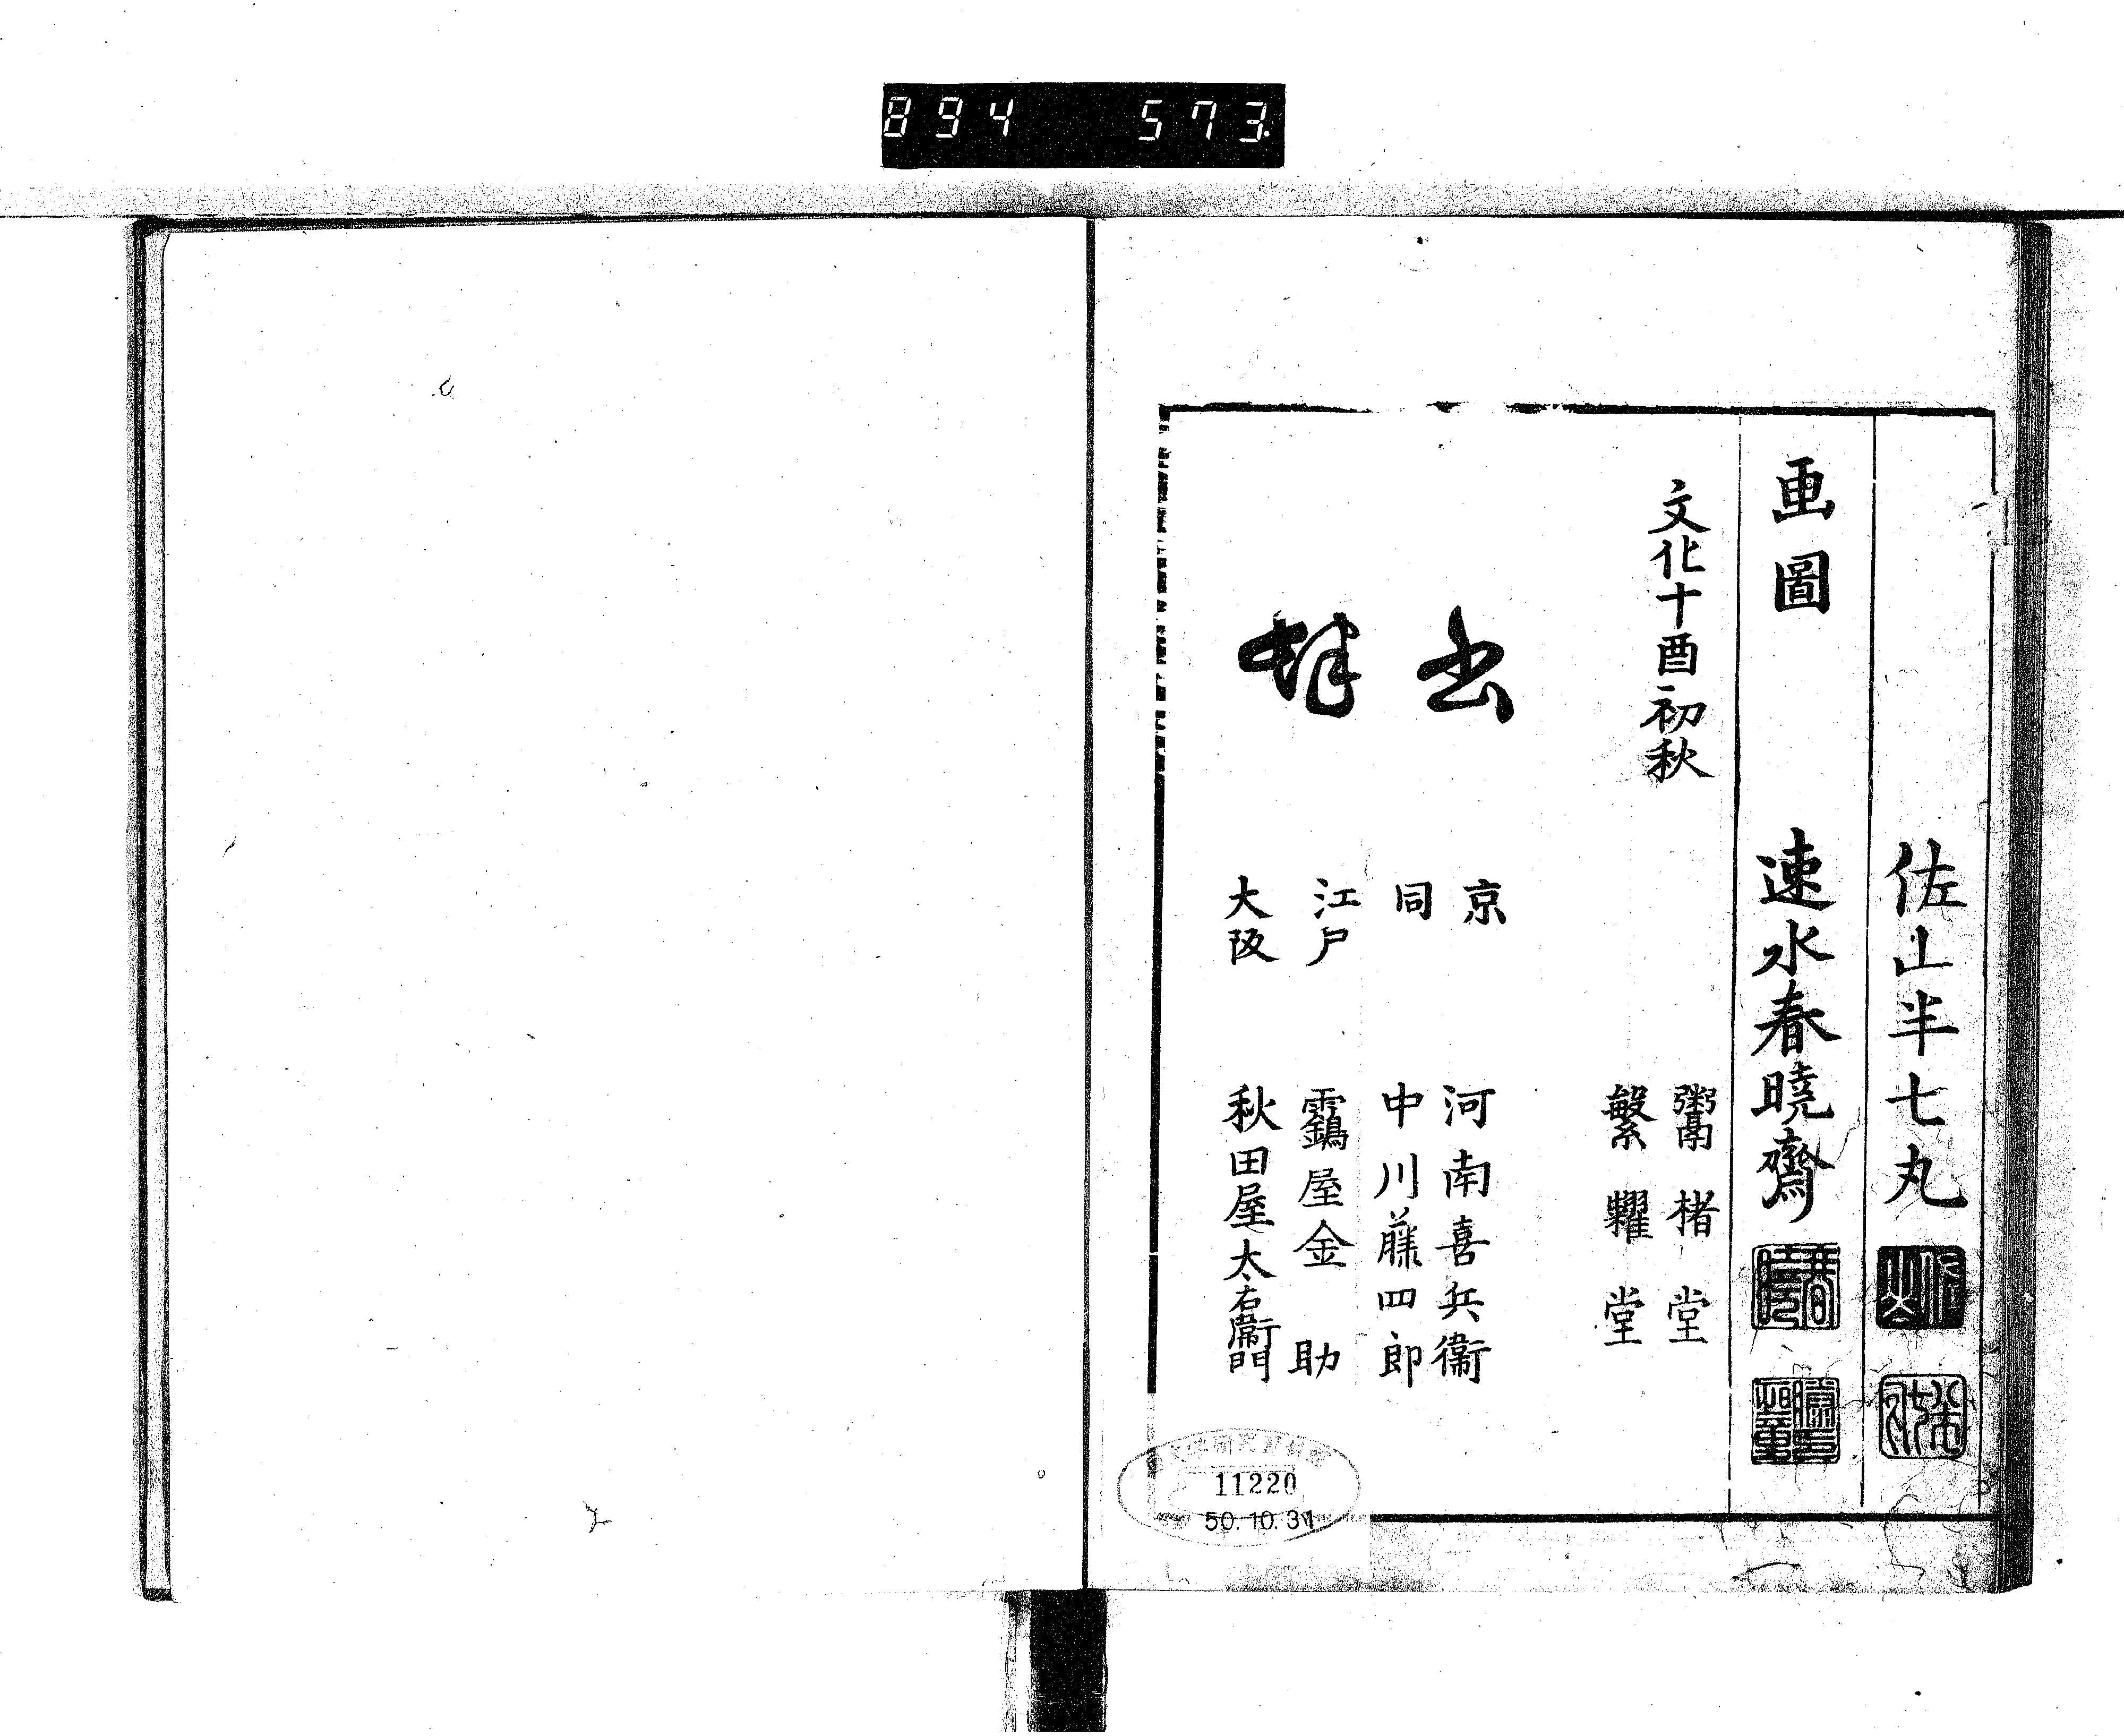 894 573
佐山半七丸
画圖 速水春曉齋
文化十酉初秋
鬻楮堂
繁糶堂
書肆
京 河南喜兵衞
同 中川藤四郎
江戸 靏屋金助
大阪 秋田屋太右衞門
11220
50.10.31